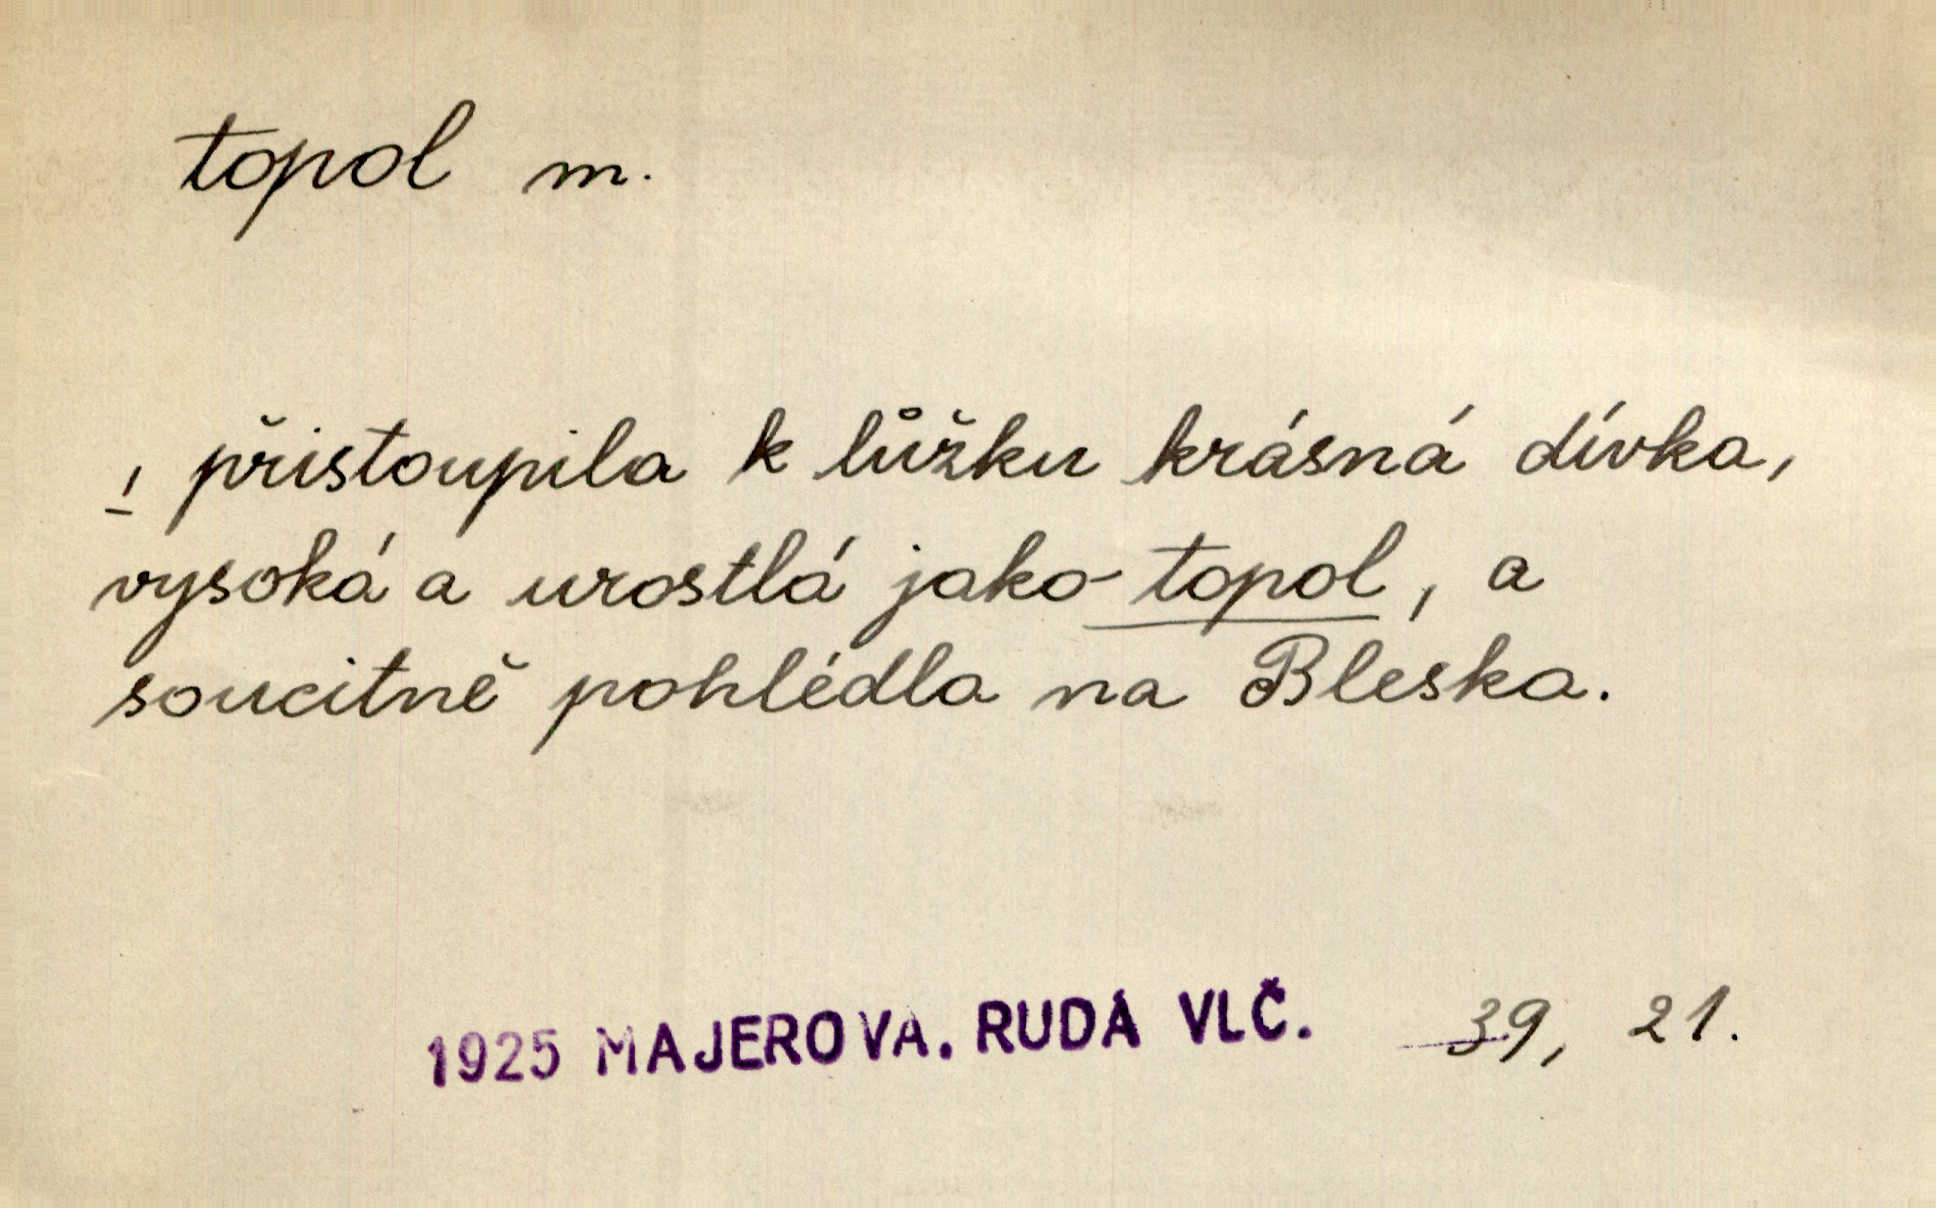 topol m.
, přistoupila k lůžku krásná dívka,
vysoká a urostlá jako topol, a
soucitně pohlédla na Bleska.
1925 MAJEROVA. RUDÁ VLČ. 39, 21.